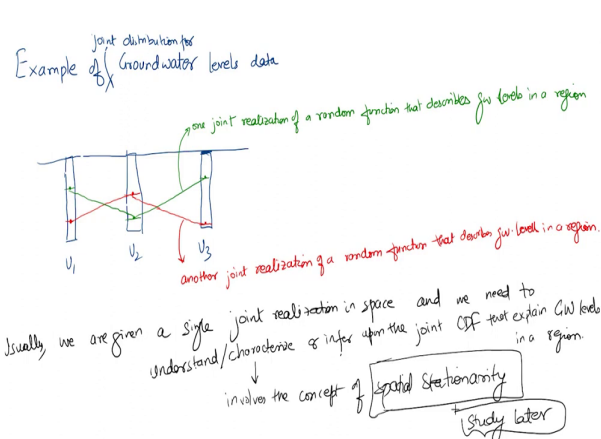 joint distribution for
Example of Groundwater levels data
one joint realization of a random function that describes GW levels in a region
U1 U2 U3
another joint realization of a random function that describes gw. levels in a region.
Usually, we are given a single joint realization in space and we need to
understand/characterize & infer upon the joint CDF that explain GW levels
in a region.
involves the concept of spatial stationarity
study later